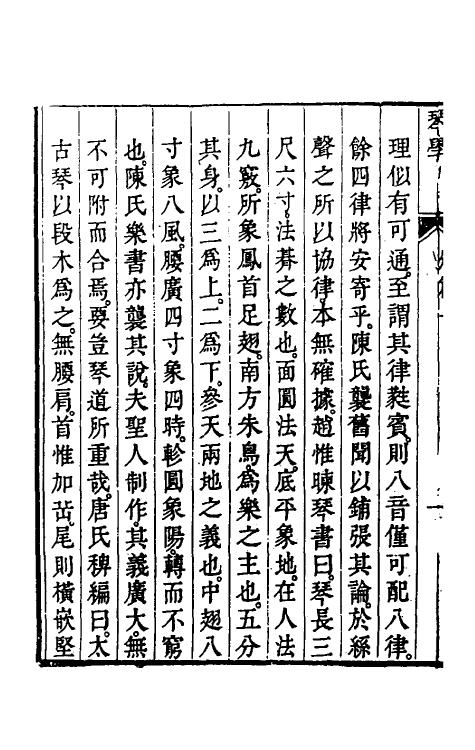 理似有可通。至謂其律蕤賓。則八音僅可配八律。
餘四律將安寄乎。陳氏襲舊聞以鋪張其論。於絲
聲之所以協律。本無確據。趙惟暕琴書曰。琴長三
尺六寸。法朞之數也。面圓法天。底平象地。在人法
九竅。所象鳳首足翅。南方朱鳥。爲樂之主也。五分
其身。以三爲上。二爲下。參天兩地之義也。中翅八
寸象八風。腰廣四寸象四時。軫圓象陽。轉而不窮
也。陳氏樂書亦襲其說。夫聖人制作。其義廣大。無
不可附而合焉。要豈琴道所重哉。唐氏稗編曰。太
古琴以段木爲之。無腰肩。首惟加岳。尾則橫嵌堅